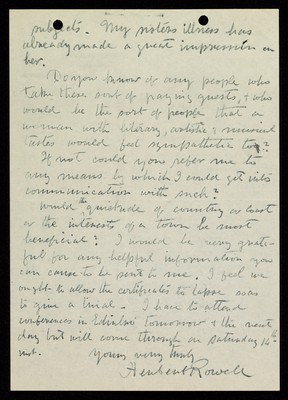 subjects. My sisters illness has
already made a great impression on
her.
Do you know of any people who
take these sort of paying guests, & who
would be the sort of people that a
woman with literary, artistic & musical
tastes would feel sympathetic to?
If not could you refer me to
any means by which I could get into
communication with such?
Would the quietude of country or coast
or the interests of a town be most
beneficial? I would be very grate-
ful for any helpful information you
can cause to be sent to me. I feel we
ought to allow the certificates to lapse so as
to give a trial - I have to attend
conferences in Edinbro tomorrow & the next
day but will come through on Saturday 14th
inst. Yours very truly
Herbert Rowell